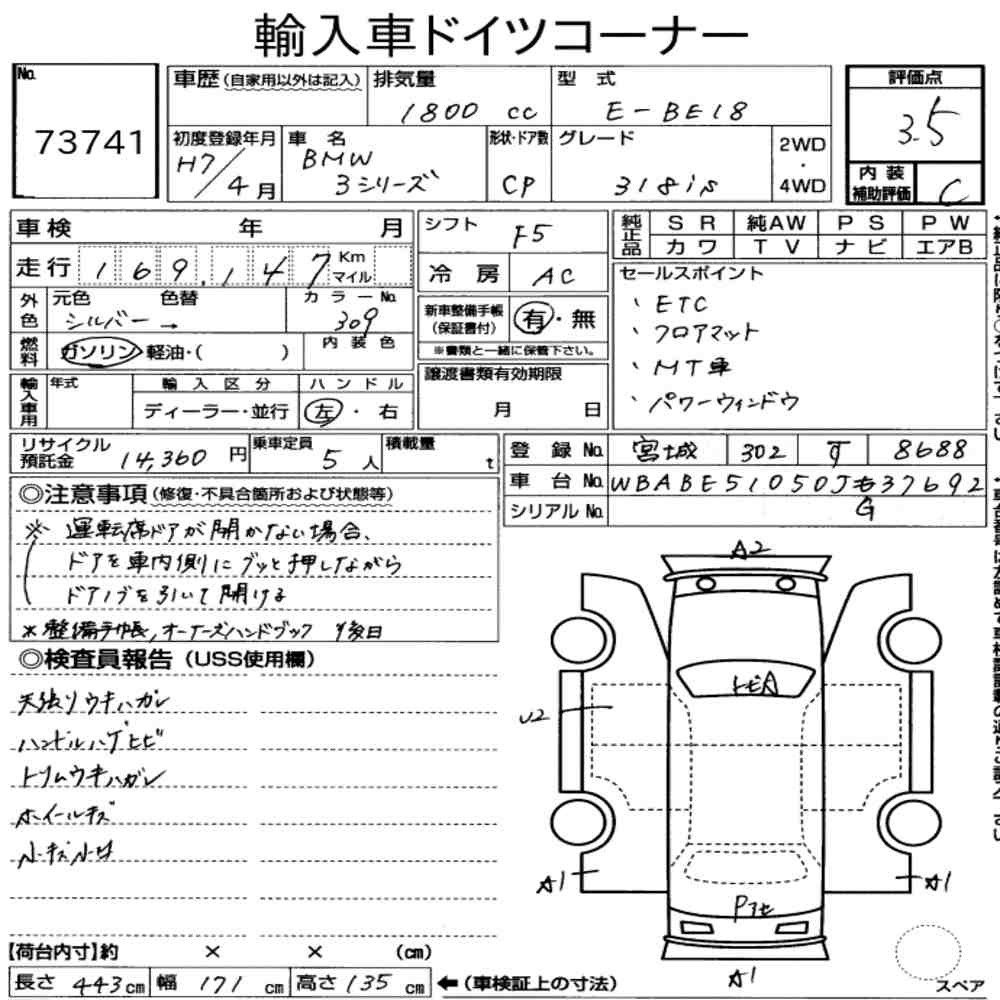 輸入車ドイツコーナー
No. 73741
車歴 (自家用以外は記入)
排気量 1800 cc
型式 E-BE18
評価点 3.5
初度登録年月 H7/4月
車名 BMW 3シリーズ
形状・ドア数 CP
グレード 318is
2WD・4WD
内装補助評価 C
車検 年 月
走行 169.147 Km マイル
シフト F5
冷房 AC
純正品 SR 純AW PS PW
カワ TV ナビ エアB
外色 元色 シルバー → 色替 カラーNo. 309
燃料 ガソリン 軽油・( ) 内装色
新車整備手帳(保証書付) 有・無
※書類と一緒に保管下さい。
セールスポイント
、ETC
、フロアマット
、MT車
、パワーウィンドウ
輸入車用 年式 輸入区分 ハンドル
ディーラー・並行 左・右
譲渡書類有効期限
月 日
リサイクル預託金 14,360円 乗車定員 5人 積載量 t
登録No. 宮城 302 す 8688
車台No. WBABE51050J 37692
G
シリアルNo.
◎注意事項 (修復・不具合箇所および状態等)
※ 運転席ドアが開かない場合、
ドアを車内側にグッと押しながら
ドアノブを引いて開ける
※整備手帳, オーナーズハンドブック 後日
◎検査員報告 (USS使用欄)
天張りウキハガレ
ハンドルハゲヒビ
トリムウキハガレ
ホイールキズ
小キズ小凹
A2
トビA
U2
A1
A1
Pアセ
A1
スペア
【荷台内寸】約 × × (cm)
長さ 443cm 幅 171cm 高さ 135cm ←(車検証上の寸法)